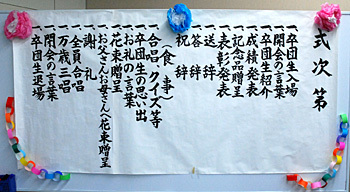 式次第
一卒団生入場
一開会の言葉
一卒団生紹介
一成績発表
一記念品贈呈
一表彰発表
一送辞
一答辞
一祝辞
（食事）
一合唱・クイズ等
一卒団生の思い出
一お礼の言葉
一花束贈呈
一お父さんお母さんへ花束贈呈
一謝礼
一全員合唱
一万歳三唱
一閉会の言葉
一卒団生退場